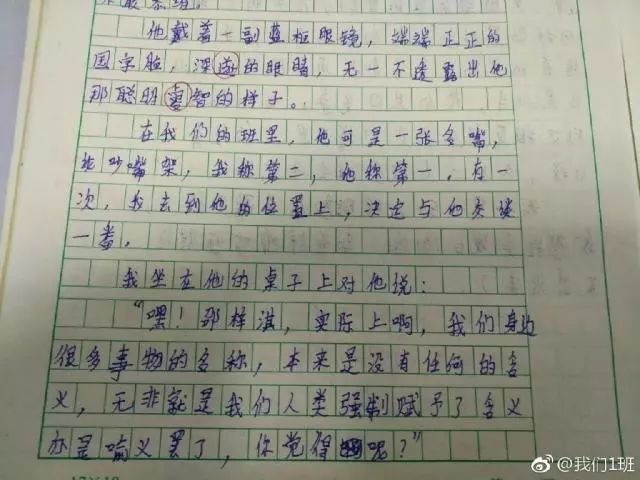 他戴着一副蓝框眼镜，端端正正的
国字脸，深邃的眼睛，无一不透露出他
那聪明睿智的样子。
在我们的班里，他可是一张名嘴，
论吵嘴架，我称第二，他称第一，有一
次，我去到他的位置上，决定与他交谈
一番，
我坐在他的桌子上对他说：
“嘿！那梓淇，实际上啊，我们身边
很多事物的名称，本来是没有任何的含
义，无非就是我们人类强制赋予了含义
亦是喻义罢了，你觉得呢？”
@我们1班